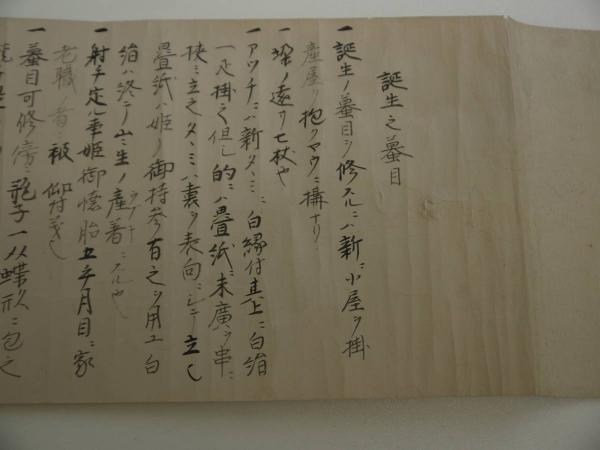 誕生之蟇目
一 誕生ノ蟇目ヲ修スルニハ新ニ小屋ヲ掛
産屋ヲ抱クヤウニ搆ナリ
一 垜ノ遠サ七杖也
一 アツチニハ新タヽミニ白縁付其上ニ白絹
一疋掛之但し的ニハ畳紙ニ末廣ヲ串ニ
挟ミ立之タヽミハ裏ヲ表向ニシテ立し
畳紙ハ姫ノ御持参百之ヲ用ユ白
絹ハ終テ山ミ生ノ産着ニスル也
一 射手定ル事姫御懐胎五ヶ月目ニ家
老職ノ者ニ被仰付義し
一 蟇目可修傍ニ瓶子一双蝶形ニ包之